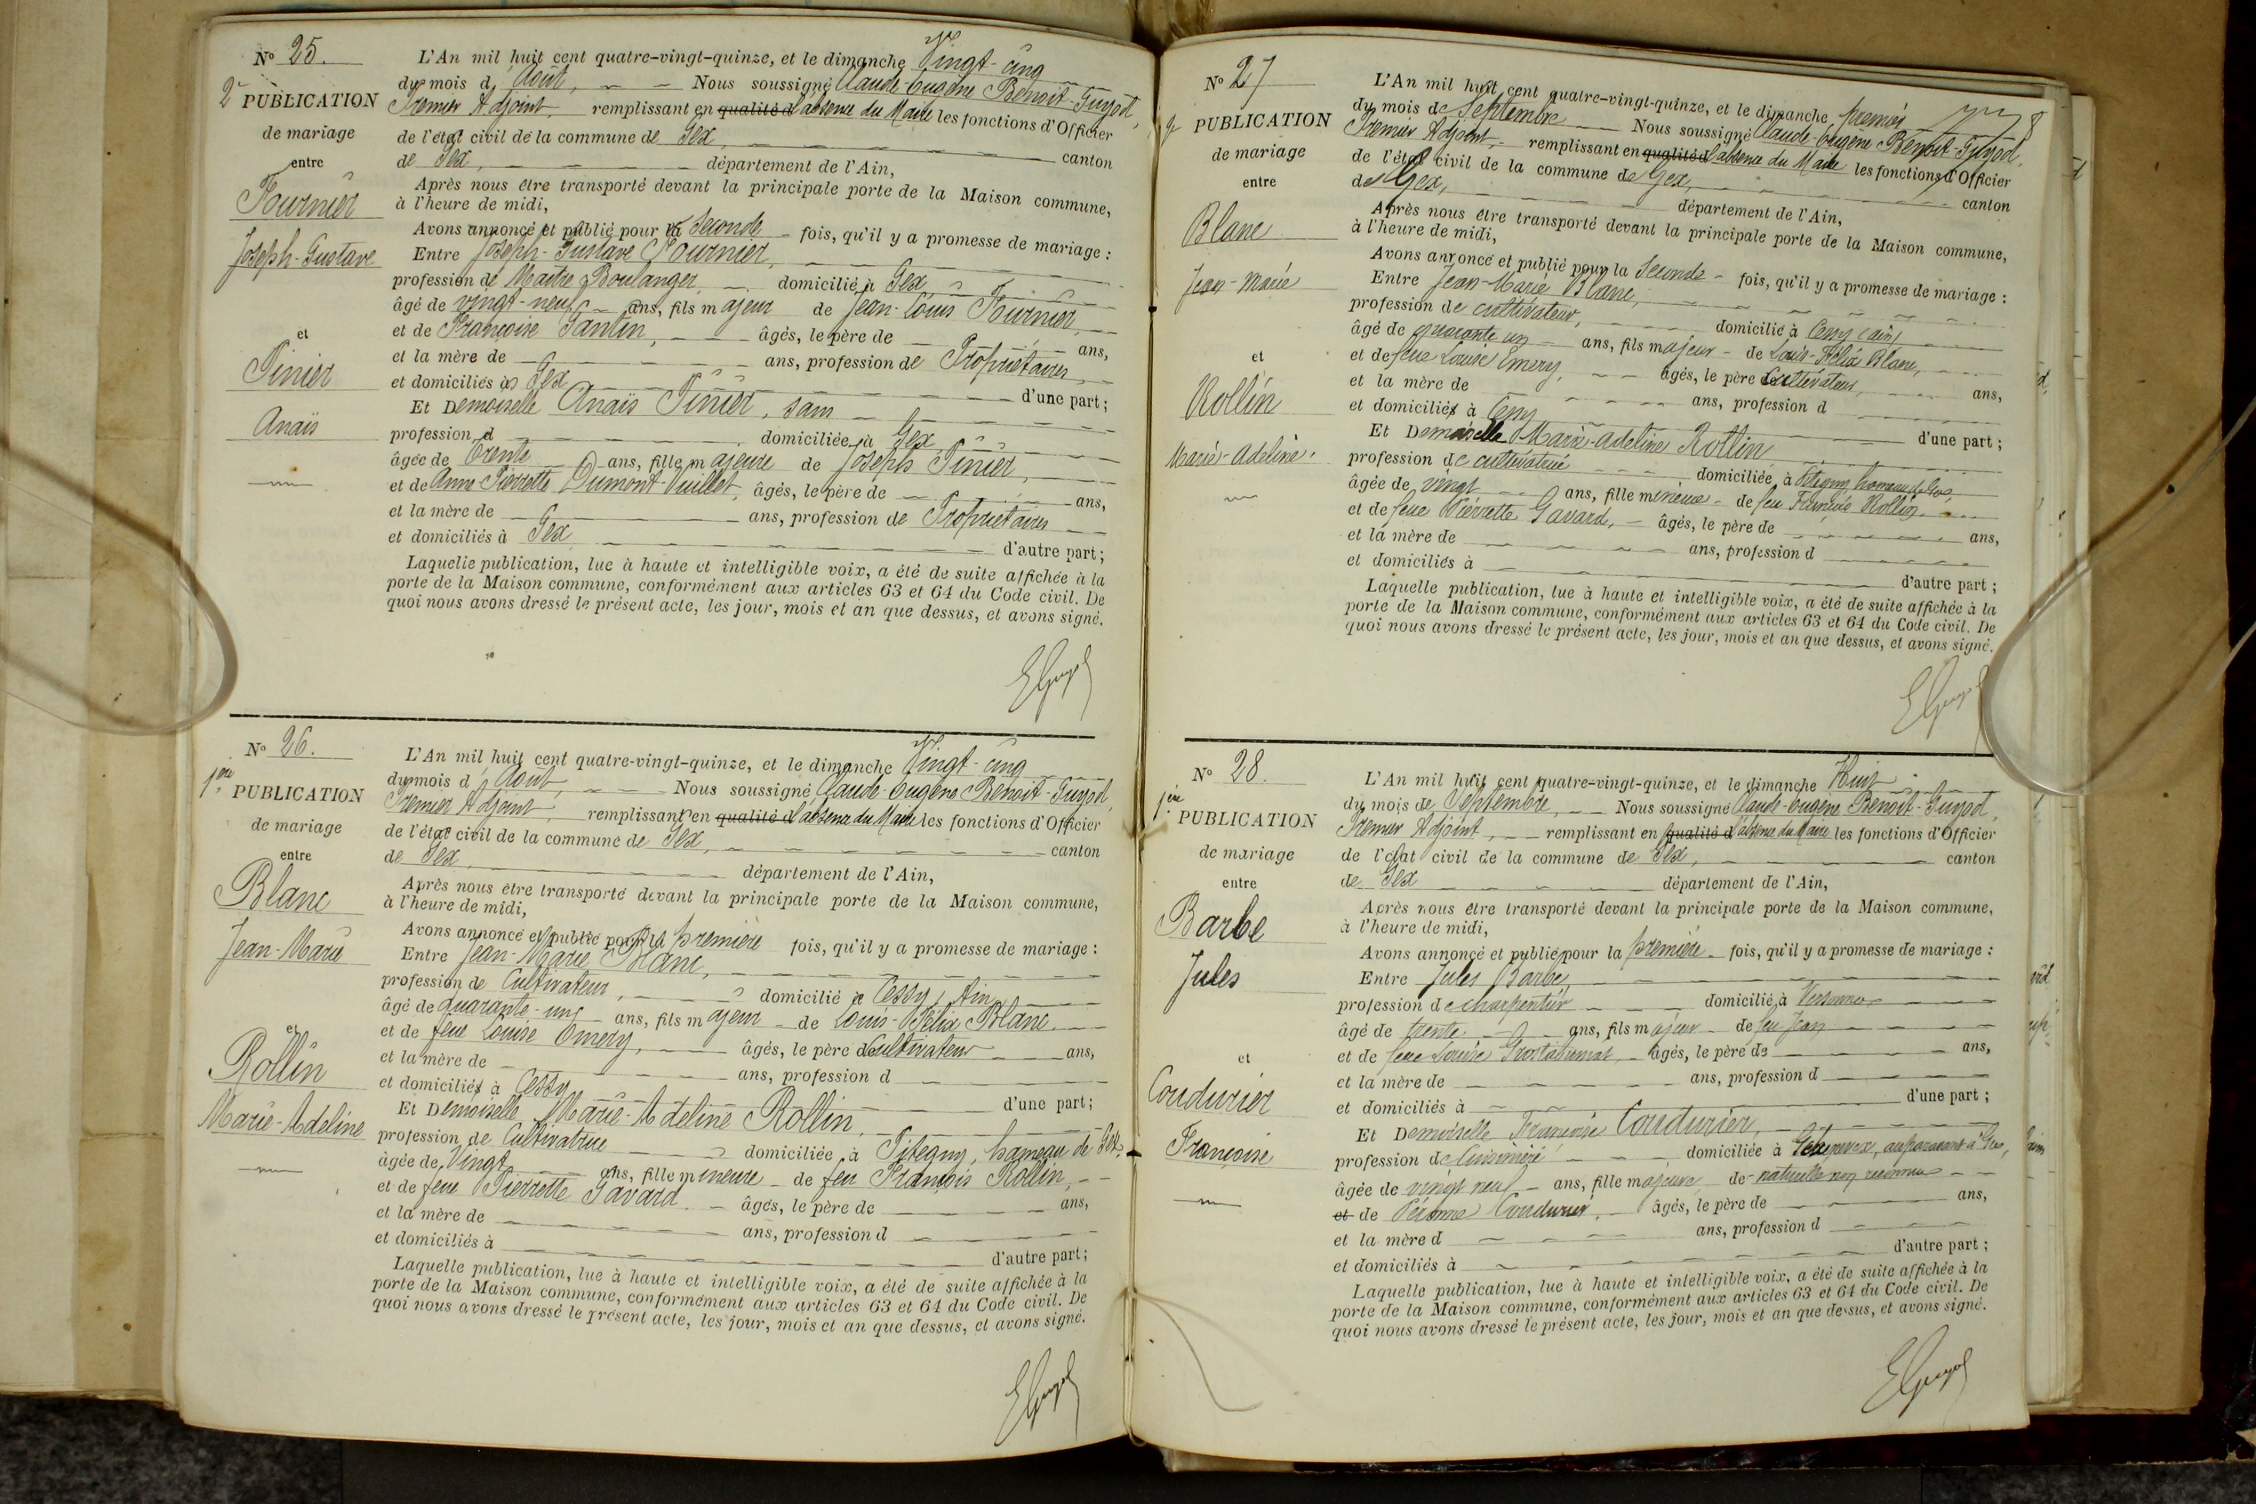 N° 25.
2e PUBLICATION
de mariage
entre
Fournier
Joseph-Gustave
et
Pinier
Anaïs
L'An mil huit cent quatre-vingt-quinze, et le dimanche Vingt-cinq
du mois d'Août, Nous soussigné Claude-Eugène Benoit-Guyod,
Premier Adjoint, remplissant en qualité d l'absence du Maire les fonctions d'Officier
de l'état civil de la commune de Gex, canton
de Gex, département de l'Ain,
Après nous être transporté devant la principale porte de la Maison commune,
à l'heure de midi,
Avons annoncé et publié pour la Seconde fois, qu'il y a promesse de mariage :
Entre Joseph-Gustave Fournier,
profession de Maître Boulanger, domicilié à Gex
âgé de vingt-neuf ans, fils majeur de Jean-Louis Fournier,
et de Françoise Pantin, âgés, le père de ans,
et la mère de ans, profession de Propriétaires,
et domiciliés à Gex d'une part;
Et Demoiselle Anaïs Pinier, sans
profession d domiciliée à Gex
âgée de Trente ans, fille majeure de Joseph Pinier,
et de Anne-Pierrette Dumont-Vuillet, âgés, le père de ans,
et la mère de ans, profession de Propriétaires
et domiciliés à Gex d'autre part;
Laquelle publication, lue à haute et intelligible voix, a été de suite affichée à la
porte de la Maison commune, conformément aux articles 63 et 64 du Code civil. De
quoi nous avons dressé le présent acte, les jour, mois et an que dessus, et avons signé.
EGuyod
N° 26.
1ère PUBLICATION
de mariage
entre
Blanc
Jean-Marie
et
Rollin
Marie-Adeline
L'An mil huit cent quatre-vingt-quinze, et le dimanche Vingt-cinq
du mois d'Août, Nous soussigné Claude-Eugène Benoit-Guyod,
Premier Adjoint, remplissant en qualité d l'absence du Maire les fonctions d'Officier
de l'état civil de la commune de Gex, canton
de Gex, département de l'Ain,
Après nous être transporté devant la principale porte de la Maison commune,
à l'heure de midi,
Avons annoncé et publié pour la première fois, qu'il y a promesse de mariage :
Entre Jean-Marie Blanc,
profession de Cultivateur, domicilié à Cessy, Ain,
âgé de quarante-un ans, fils majeur de Louis-Félix Blanc
et de feue Louise Emery, âgés, le père d Cultivateur ans,
et la mère de ans, profession d
et domiciliés à Cessy d'une part;
Et Demoiselle Marie-Adeline Rollin,
profession de Cultivatrice domiciliée à Pitegny, hameau de Gex,
âgée de Vingt ans, fille mineure de feu François Rollin,
et de feue Pierrette Gavard âgés, le père de ans,
et la mère de ans, profession d
et domiciliés à d'autre part;
Laquelle publication, lue à haute et intelligible voix, a été de suite affichée à la
porte de la Maison commune, conformément aux articles 63 et 64 du Code civil. De
quoi nous avons dressé le présent acte, les jour, mois et an que dessus, et avons signé.
EGuyod
N° 27
2e PUBLICATION
de mariage
entre
Blanc
Jean-Marie
et
Rollin
Marie-Adeline
L'An mil huit cent quatre-vingt-quinze, et le dimanche premier
du mois de Septembre Nous soussigné Claude-Eugène Benoit-Guyod,
Premier Adjoint, remplissant en qualité d l'absence du Maire les fonctions d'Officier
de l'état civil de la commune de Gex, canton
de Gex, département de l'Ain,
Après nous être transporté devant la principale porte de la Maison commune,
à l'heure de midi,
Avons annoncé et publié pour la Seconde fois, qu'il y a promesse de mariage :
Entre Jean-Marie Blanc,
profession de cultivateur, domicilié à Cessy (Ain)
âgé de quarante un ans, fils majeur de Louis-Félix Blanc,
et de feue Louise Emery, âgés, le père de Cultivateur, ans,
et la mère de ans, profession d
et domiciliés à Cessy d'une part;
Et Demoiselle Marie-Adeline Rollin
profession de domiciliée à Pitegny hameau de Gex,
âgée de vingt ans, fille mineure de feu François Rollin
et de feue Pierrette Gavard, âgés, le père de ans,
et la mère de ans, profession d
et domiciliés à d'autre part;
Laquelle publication, lue à haute et intelligible voix, a été de suite affichée à la
porte de la Maison commune, conformément aux articles 63 et 64 du Code civil. De
quoi nous avons dressé le présent acte, les jour, mois et an que dessus, et avons signé.
EGuyod
N° 28.
1ère PUBLICATION
de mariage
entre
Barbe
Jules
et
Coudurier
Françoise
L'An mil huit cent quatre-vingt-quinze, et le dimanche Huit
du mois de Septembre, Nous soussigné Claude-Eugène Benoit-Guyod,
Premier Adjoint, remplissant en qualité d l'absence du Maire les fonctions d'Officier
de l'état civil de la commune de Gex, canton
de Gex département de l'Ain,
Après nous être transporté devant la principale porte de la Maison commune,
à l'heure de midi,
Avons annoncé et publié pour la première fois, qu'il y a promesse de mariage :
Entre Jules Barbe,
profession de charpentier domicilié à
âgé de trente ans, fils majeur de feu Jean
et de feue Louise âgés, le père de ans,
et la mère de ans, profession d
et domiciliés à d'une part;
Et Demoiselle Françoise Coudurier,
profession de Cuisinière domiciliée à auparavant à Gex,
âgée de vingt neuf ans, fille majeure de naturelle non reconnue
et de Péronne Coudurier, âgés, le père de ans,
et la mère d ans, profession d
et domiciliés à d'autre part;
Laquelle publication, lue à haute et intelligible voix, a été de suite affichée à la
porte de la Maison commune, conformément aux articles 63 et 64 du Code civil. De
quoi nous avons dressé le présent acte, les jour, mois et an que dessus, et avons signé.
EGuyod